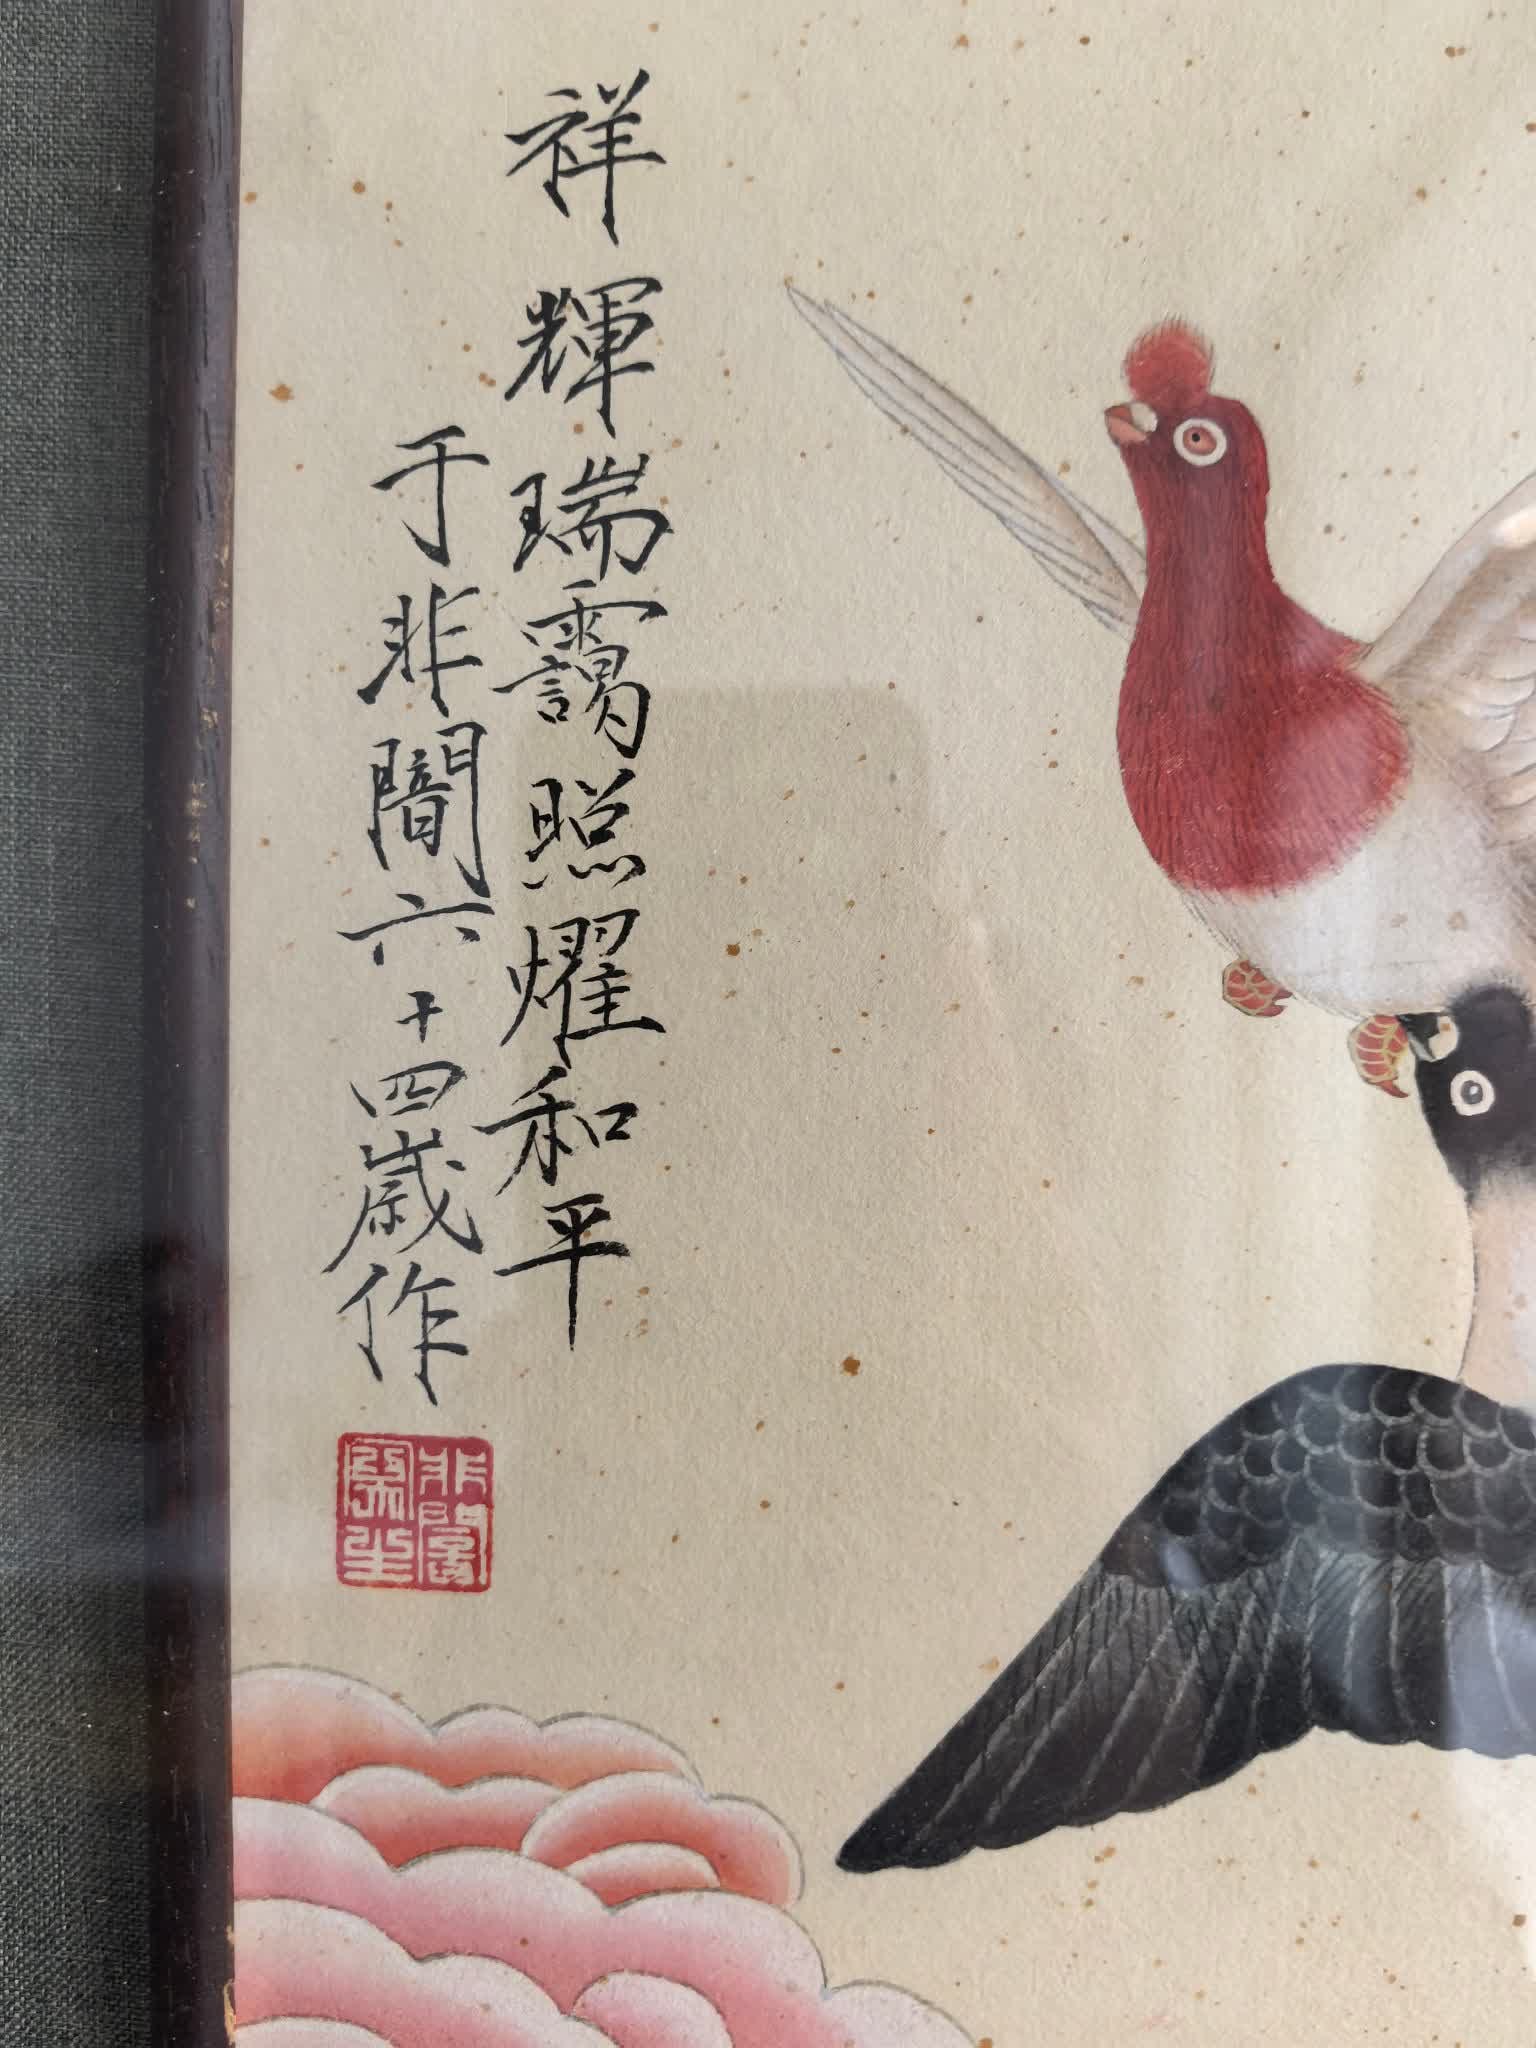 祥輝瑞靄照耀和平
于非闇六十四歲作
非闇
寫生